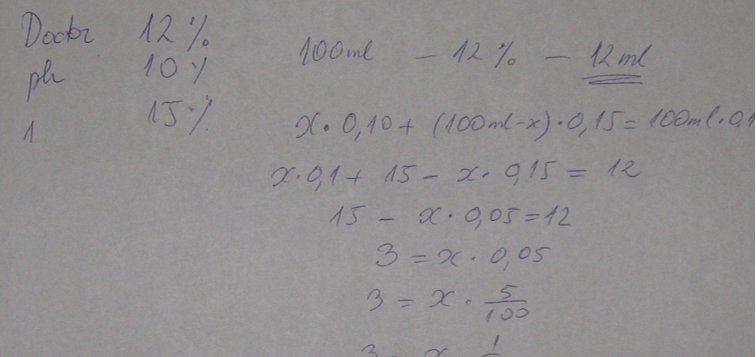 Doctor 12%
ph 10%
1 15%
100ml – 12% – 12ml
x · 0,10 + (100ml-x) · 0,15 = 100ml · 0,1
x · 0,1 + 15 – x · 0,15 = 12
15 – x · 0,05 = 12
3 = x · 0,05
3 = x · 5/100
3 = x · 1